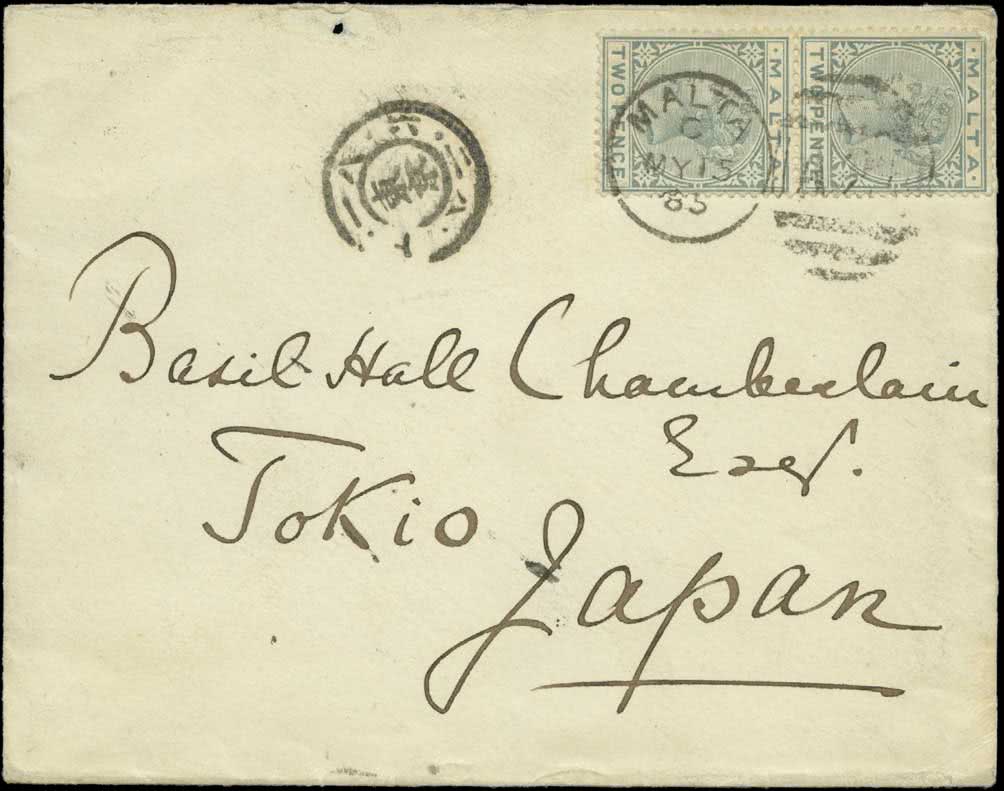 MALTA
TWO PENCE
MALTA
TWO PENCE
MALTA
C
MY 13
85
東京
Basil Hall Chamberlain
Esq.
Tokio
Japan